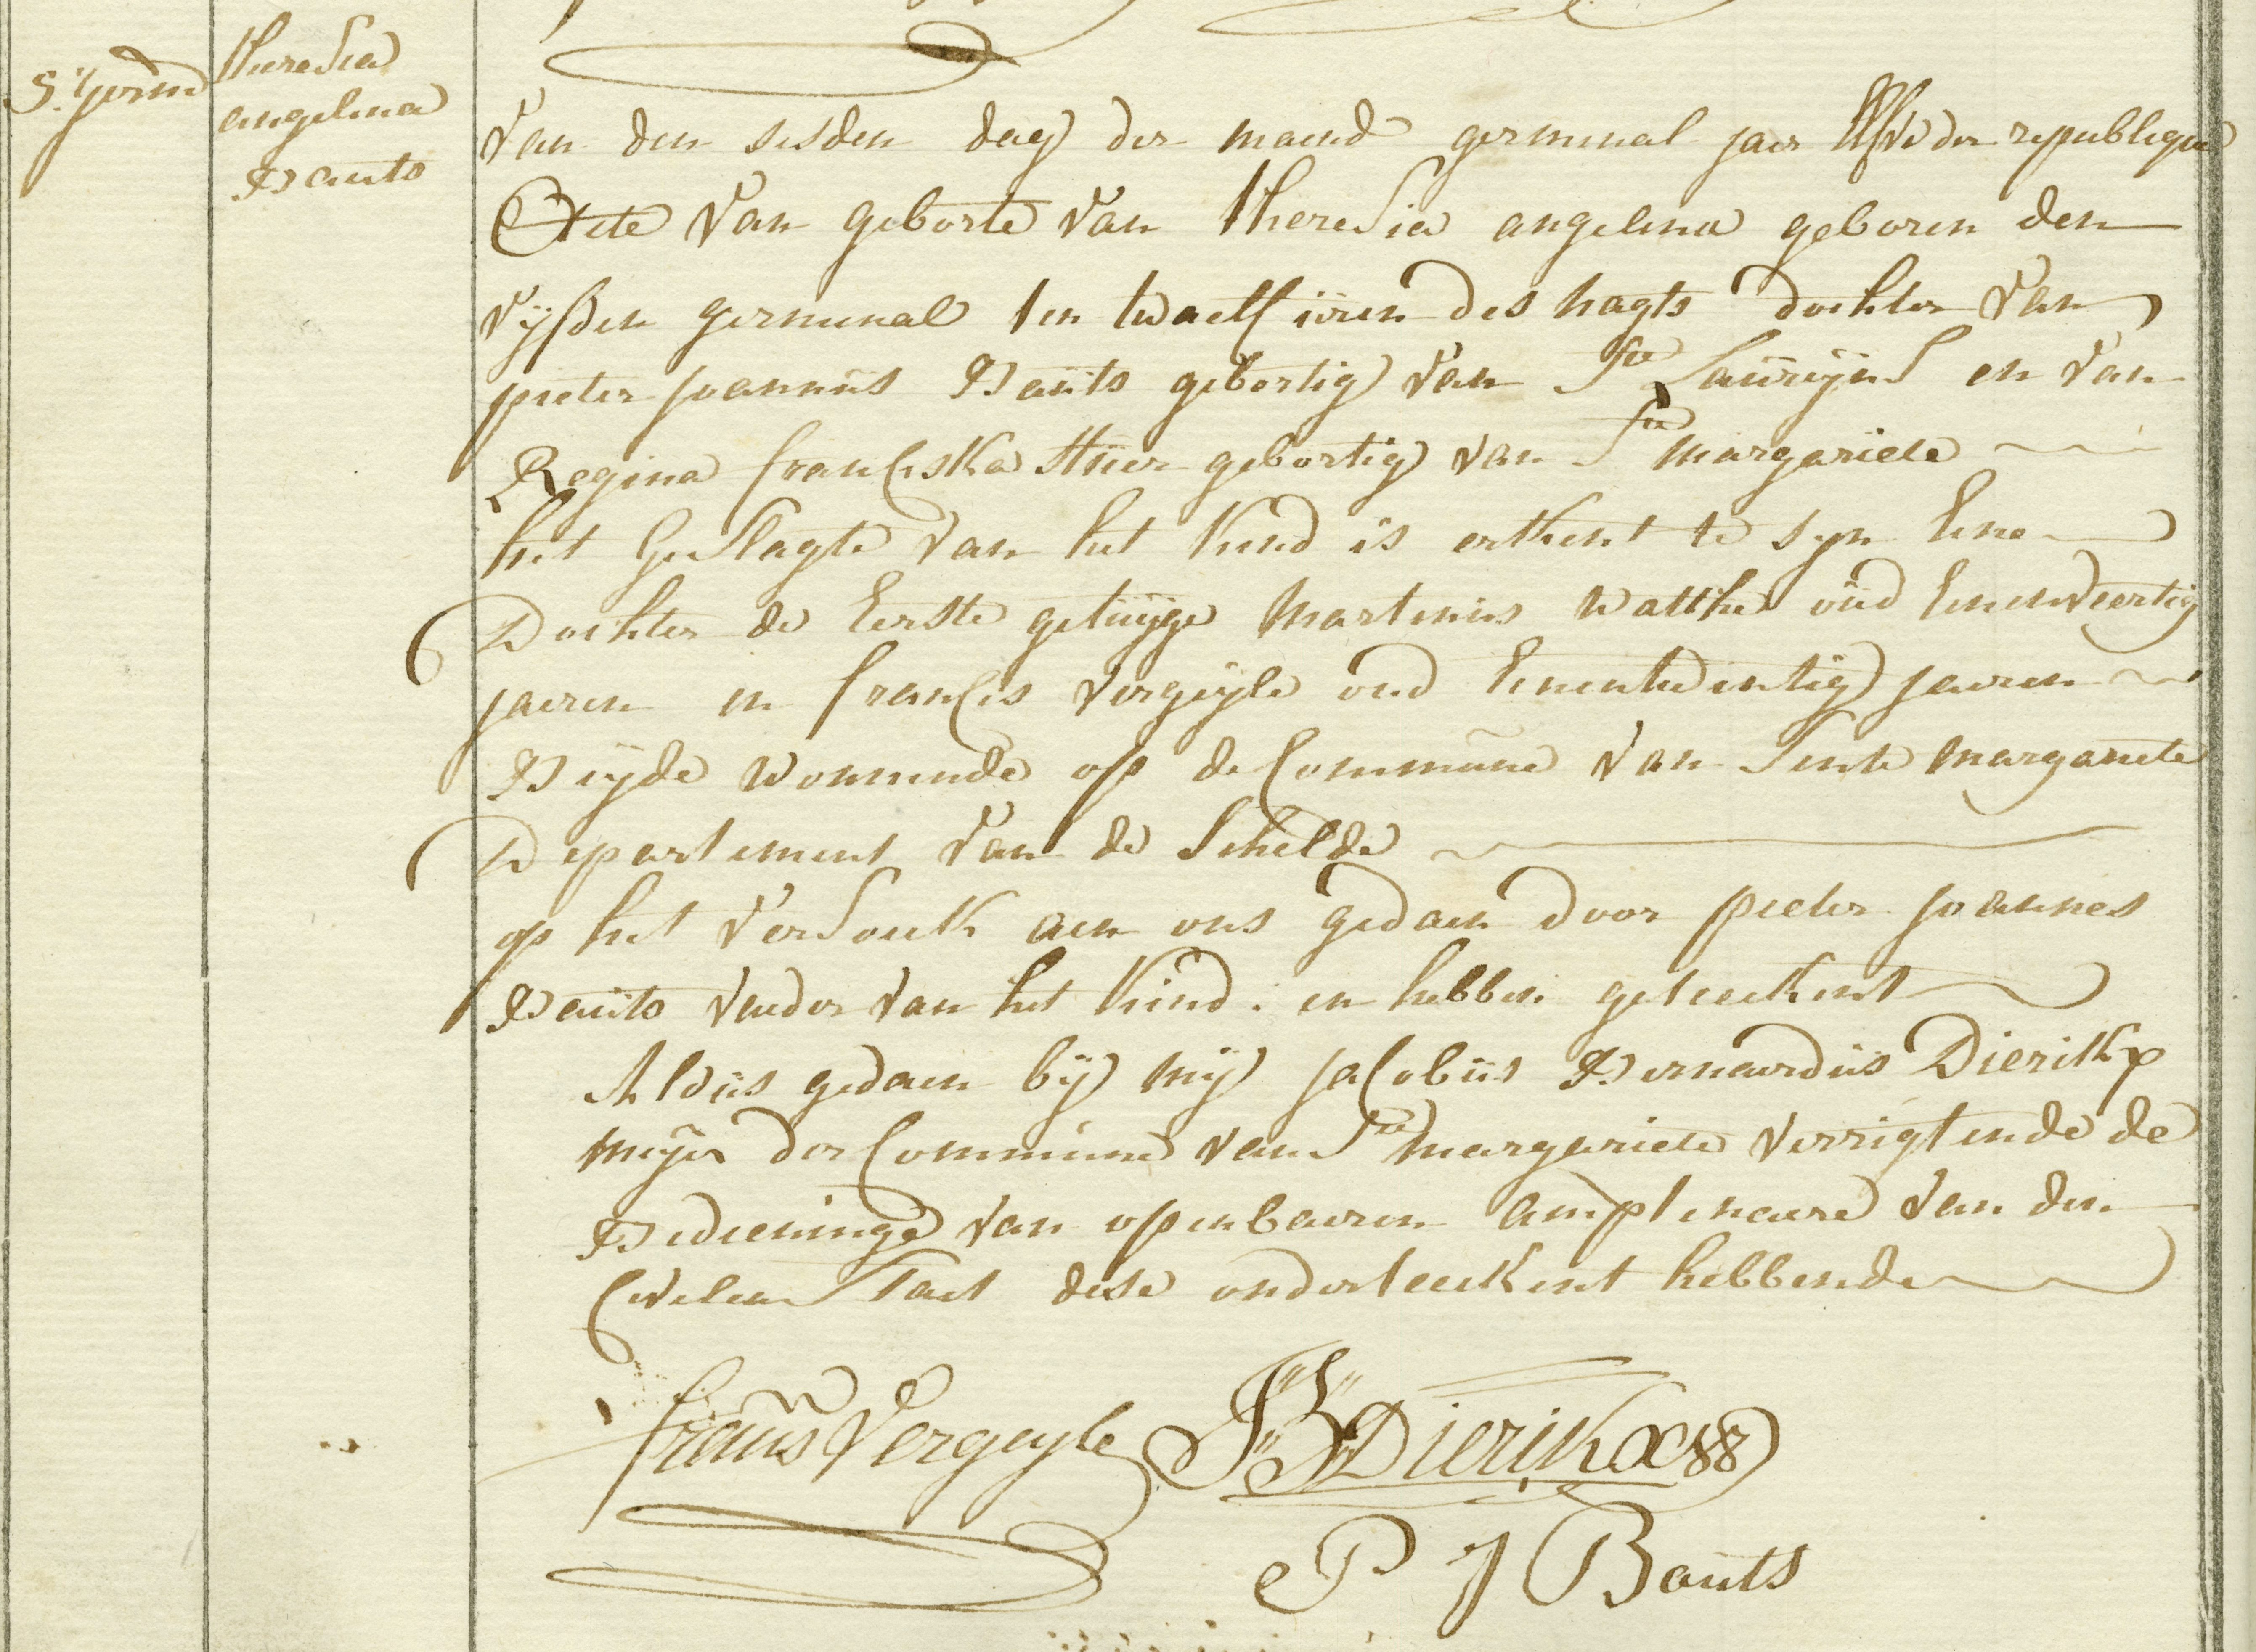 5: germ
theresia
angelina
Bauts
Van den sesden dag der maend germinal jaer Elfve der republique
Acte van geborte van theresia angelina geboren den
vijfden germinal ten twaelf üren des nagts dochter van
pieter joannüs Baüts gebortig van Ste Laürijns en van
Regina franciska Stüer gebortig van Ste margariete
het Geslagte van het kind is erkent te syn Eene
Dochter de Eerste getüijge Martinüs Watthé oüd Eenenveertig
jaeren en francis vergeyle oud Eenentwintig jaeren
Beijde woonende op de Commüne van Sente margariete
Departement van de Schelde
op het versoek aen ons gedaen door pieter joannes
Baüts vaeder van het kind. en hebben geteekent
Aldüs gedaen bij mij jacobüs Bernardüs Dierikx
meijer der Commüne van Ste margariete verrigtende de
Bedieninge van openbaeren ampteneare van den
Civielen Staet dese onderteekent hebbende
frañs Vergeyle J B Dierikx
P J Baüts